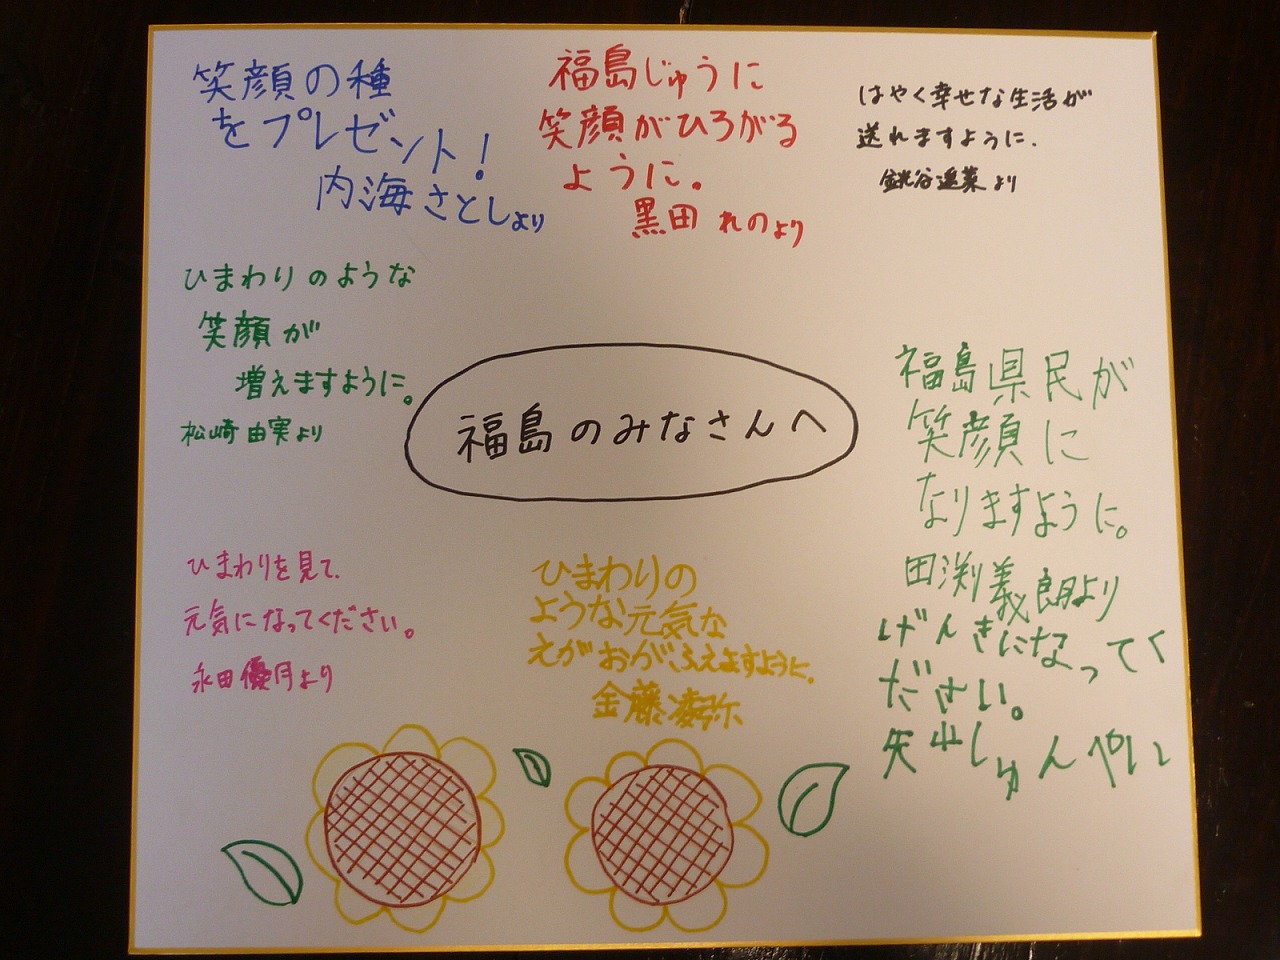 笑顔の種
をプレゼント！
内海さとしより
福島じゅうに
笑顔がひろがる
ように。
黒田れのより
はやく幸せな生活が
送れますように.
谷遥菜より
ひまわりのような
笑顔が
増えますように。
松崎由実より
福島のみなさんへ
福島県民が
笑顔に
なりますように。
田渕義朗より
げんきになってく
ださい。
しゅんやい
ひまわりを見て、
元気になってください。
永田優月より
ひまわりの
ような元気な
えがおがふえますように。
金藤凌弥